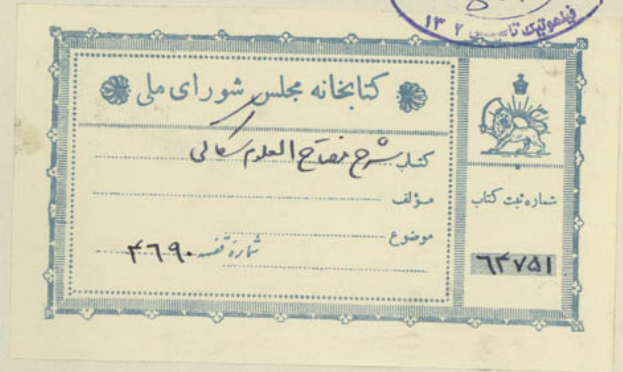 کتابخانه مجلس شورای ملی
کتاب شرح مفتاح العلوم سکاکی
مؤلف
موضوع
شمارهٔ قفسه ۴۶۹۰
شماره ثبت کتاب
۶۴۷۵۱
۱۳۰۲